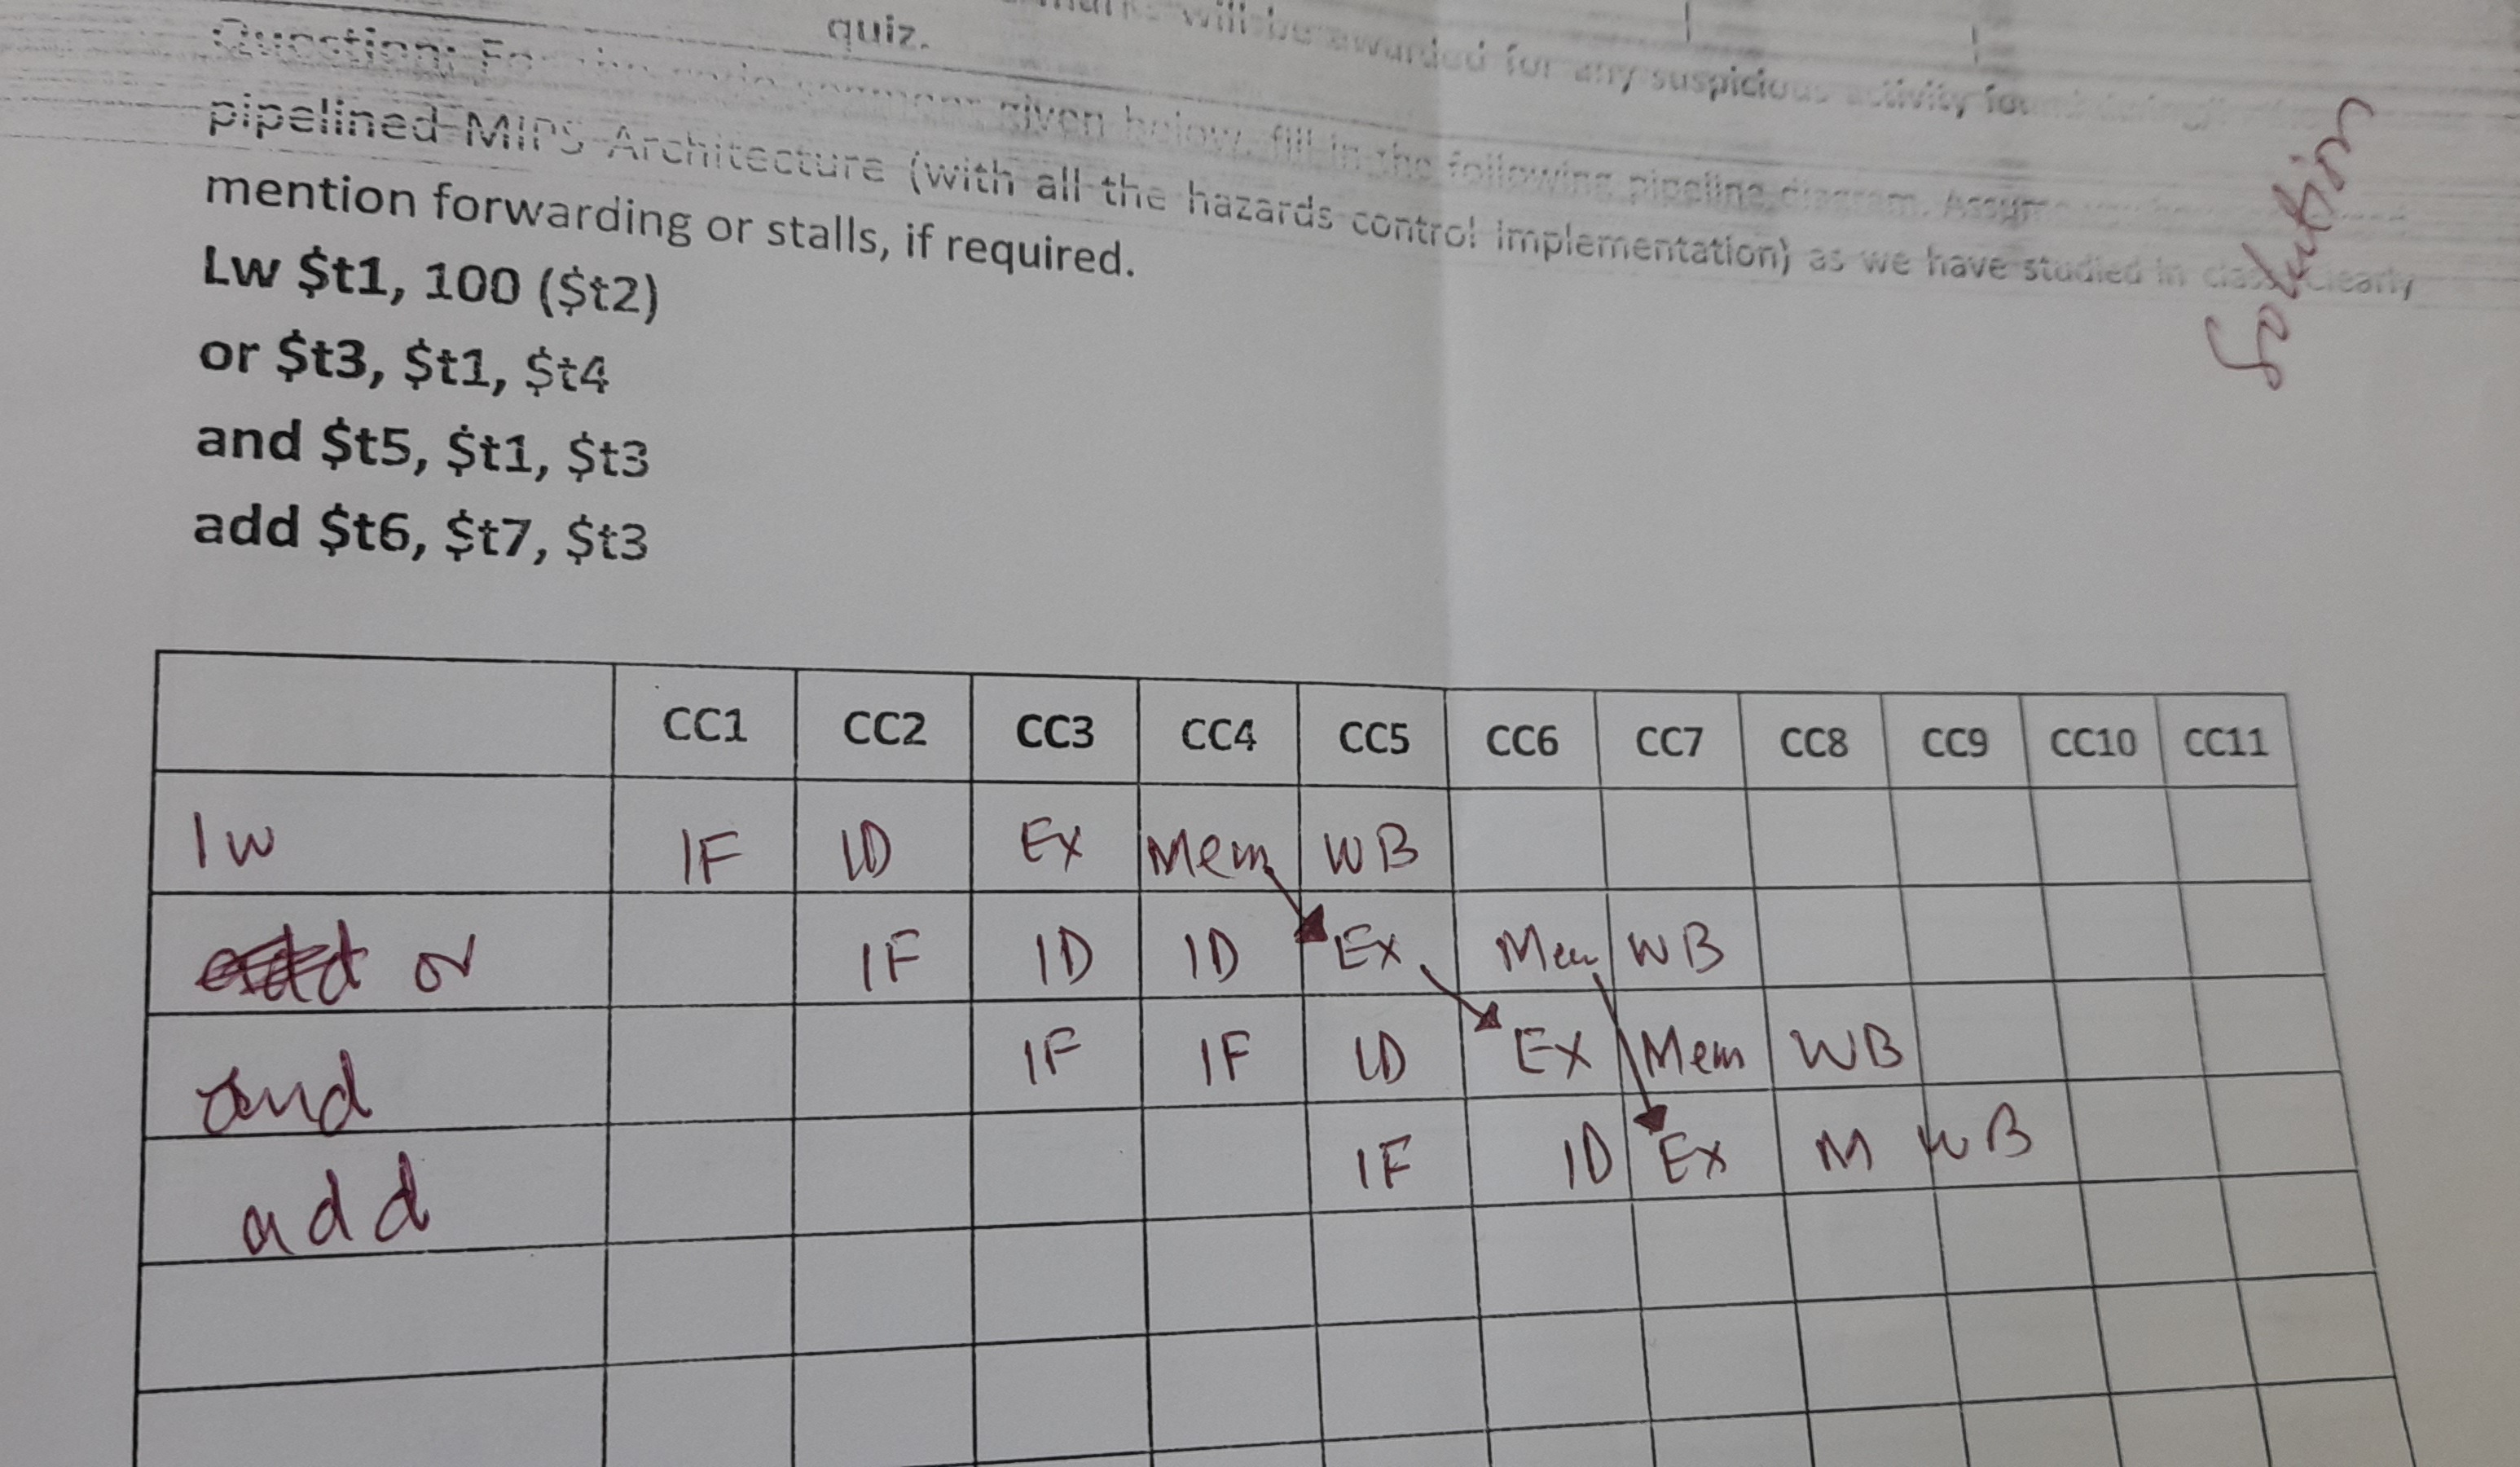 quiz.
marks will be awarded for any suspicious activity found during
Question: For the code given below, fill in the following pipeline diagram. Assume
pipelined MIPS Architecture (with all the hazards control implementation) as we have studied in class. Clearly
mention forwarding or stalls, if required.
Solution
Lw $t1, 100 ($t2)
or $t3, $t1, $t4
and $t5, $t1, $t3
add $t6, $t7, $t3
CC1 CC2 CC3 CC4 CC5 CC6 CC7 CC8 CC9 CC10 CC11
lw IF ID Ex Mem WB
or IF ID ID Ex Mem WB
and IF IF ID Ex Mem WB
add IF ID Ex M WB